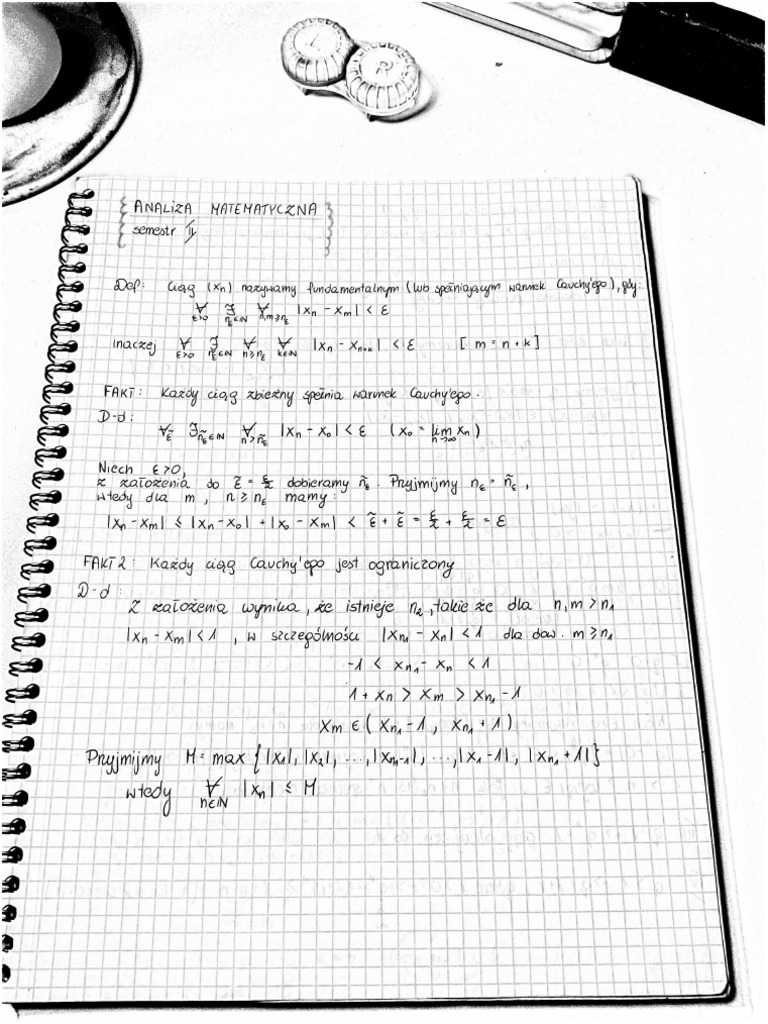 1
2
ANALIZA MATEMATYCZNA
semestr II
Def: Ciąg (xn) nazywamy fundamentalnym (lub spełniającym warunek Cauchy'ego), gdy:
∀ ε>0 ∃ nε∈ℕ ∀ n,m≥nε |xn − xm| < ε
inaczej ∀ ε>0 ∃ nε∈ℕ ∀ n≥nε ∀ k∈ℕ |xn − xn+k| < ε [ m = n + k ]
FAKT: Każdy ciąg zbieżny spełnia warunek Cauchy'ego.
D-d:
∀ ε̃ ∃ ñε∈ℕ ∀ n>ñε |xn − x₀| < ε (x₀ = lim n→∞ xn)
Niech ε>0,
z założenia do ε̃ = ε/2 dobieramy ñε. Przyjmijmy nε = ñε,
wtedy dla m, n ≥ nε mamy:
|xn − xm| ≤ |xn − x₀| + |x₀ − xm| < ε̃ + ε̃ = ε/2 + ε/2 = ε
FAKT 2: Każdy ciąg Cauchy'ego jest ograniczony
D-d:
Z założenia wynika, że istnieje n₂, takie że dla n,m > n₁
|xn − xm| < 1, w szczególności |xn₁ − xn| < 1 dla dow. m ≥ n₁
-1 < xn₁ − xn < 1
1 + xn > xm > xn₁ − 1
xm ∈ ( xn₁ − 1, xn₁ + 1 )
Przyjmijmy M = max { |x₁|, |x₂|, ..., |xn₁-1|, ..., |x₁ − 1|, |xn₁ + 1| }
wtedy ∀ n∈ℕ |xn| ≤ M